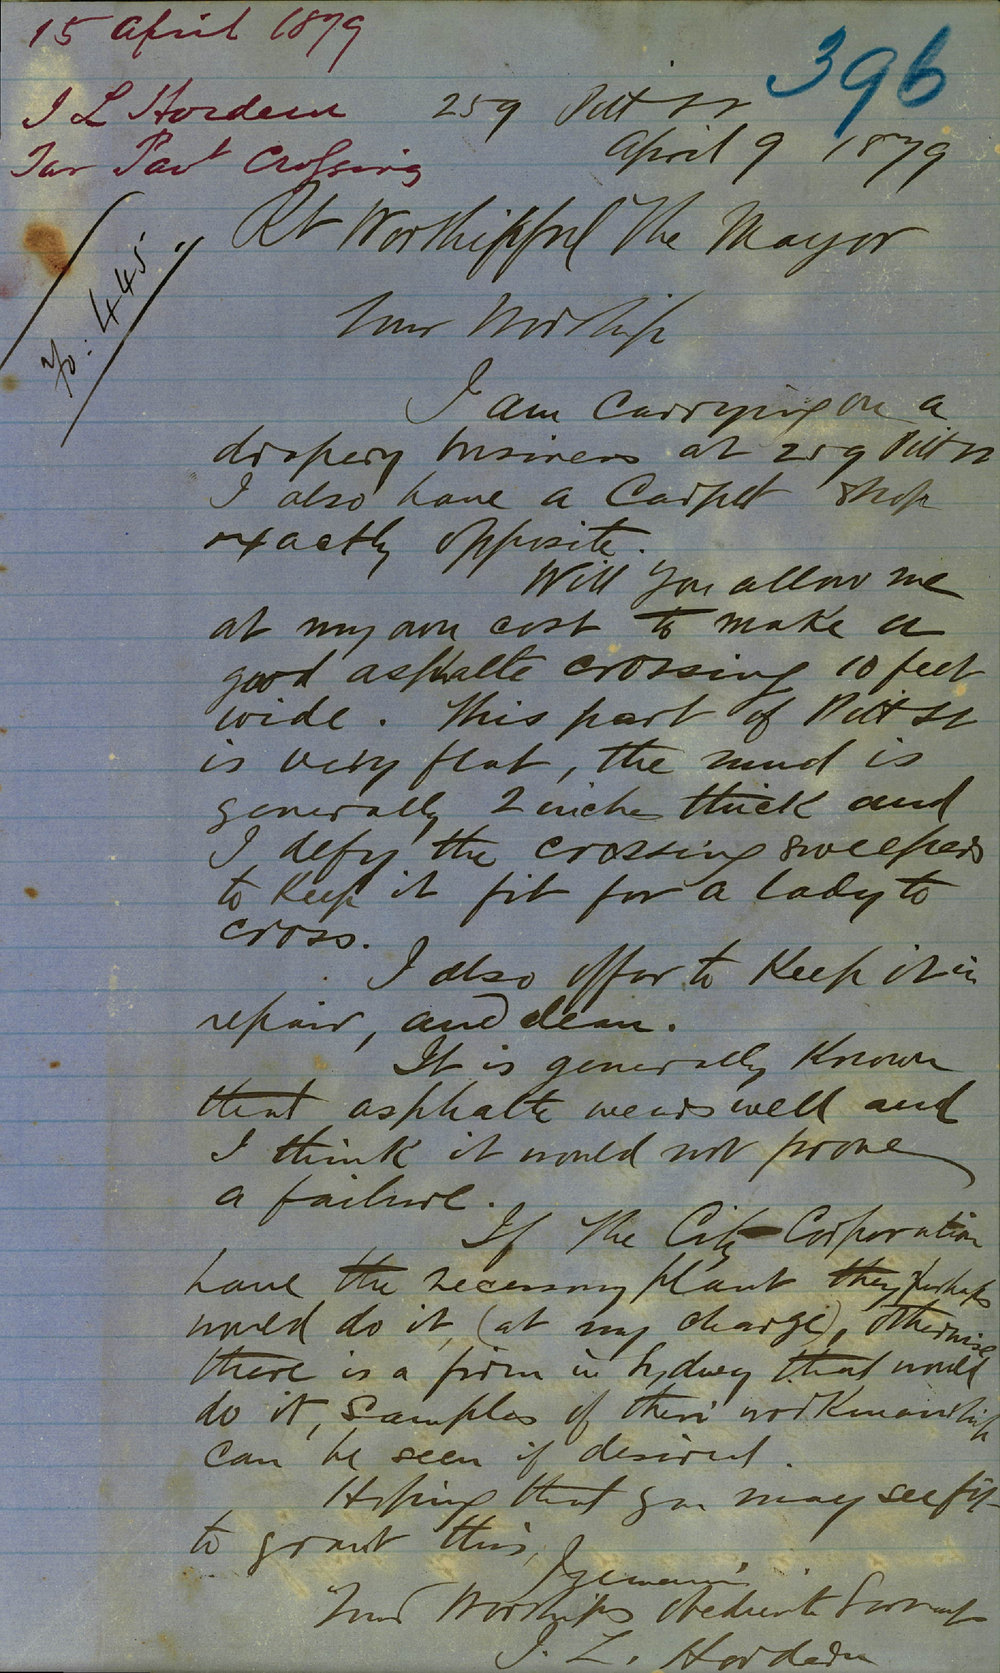 15 April 1879
396
J L Hordern
Tar Pavt Crossing
No: 445
259 Pitt St
April 9 1879
Rt Worshipful The Mayor
Your Worship
I am carrying on a
drapery business at 259 Pitt St
I also have a Carpet shop
exactly opposite.
Will you allow me
at my own cost to make a
good asphalte crossing 10 feet
wide. This part of Pitt St
is very flat, the mud is
generally 2 inches thick and
I defy the crossing sweepers
to keep it fit for a lady to
cross.
I also offer to keep it in
repair, and clean.
It is generally known
that asphalte wears well and
I think it would not prove
a failure.
If The City Corporation
have the necessary plant they perhaps
would do it, (at my charge), otherwise
there is a firm in Sydney that would
do it, samples of their workmanship
can be seen if desired.
Hoping that you may see fit
to grant this,
I remain
Your Worships obedient Servant
J. L. Hordern